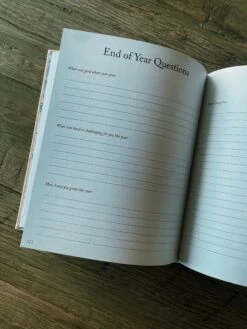 End of Year Questions
What was good about your year
What was hard or challenging for you this year
How have you grown this year